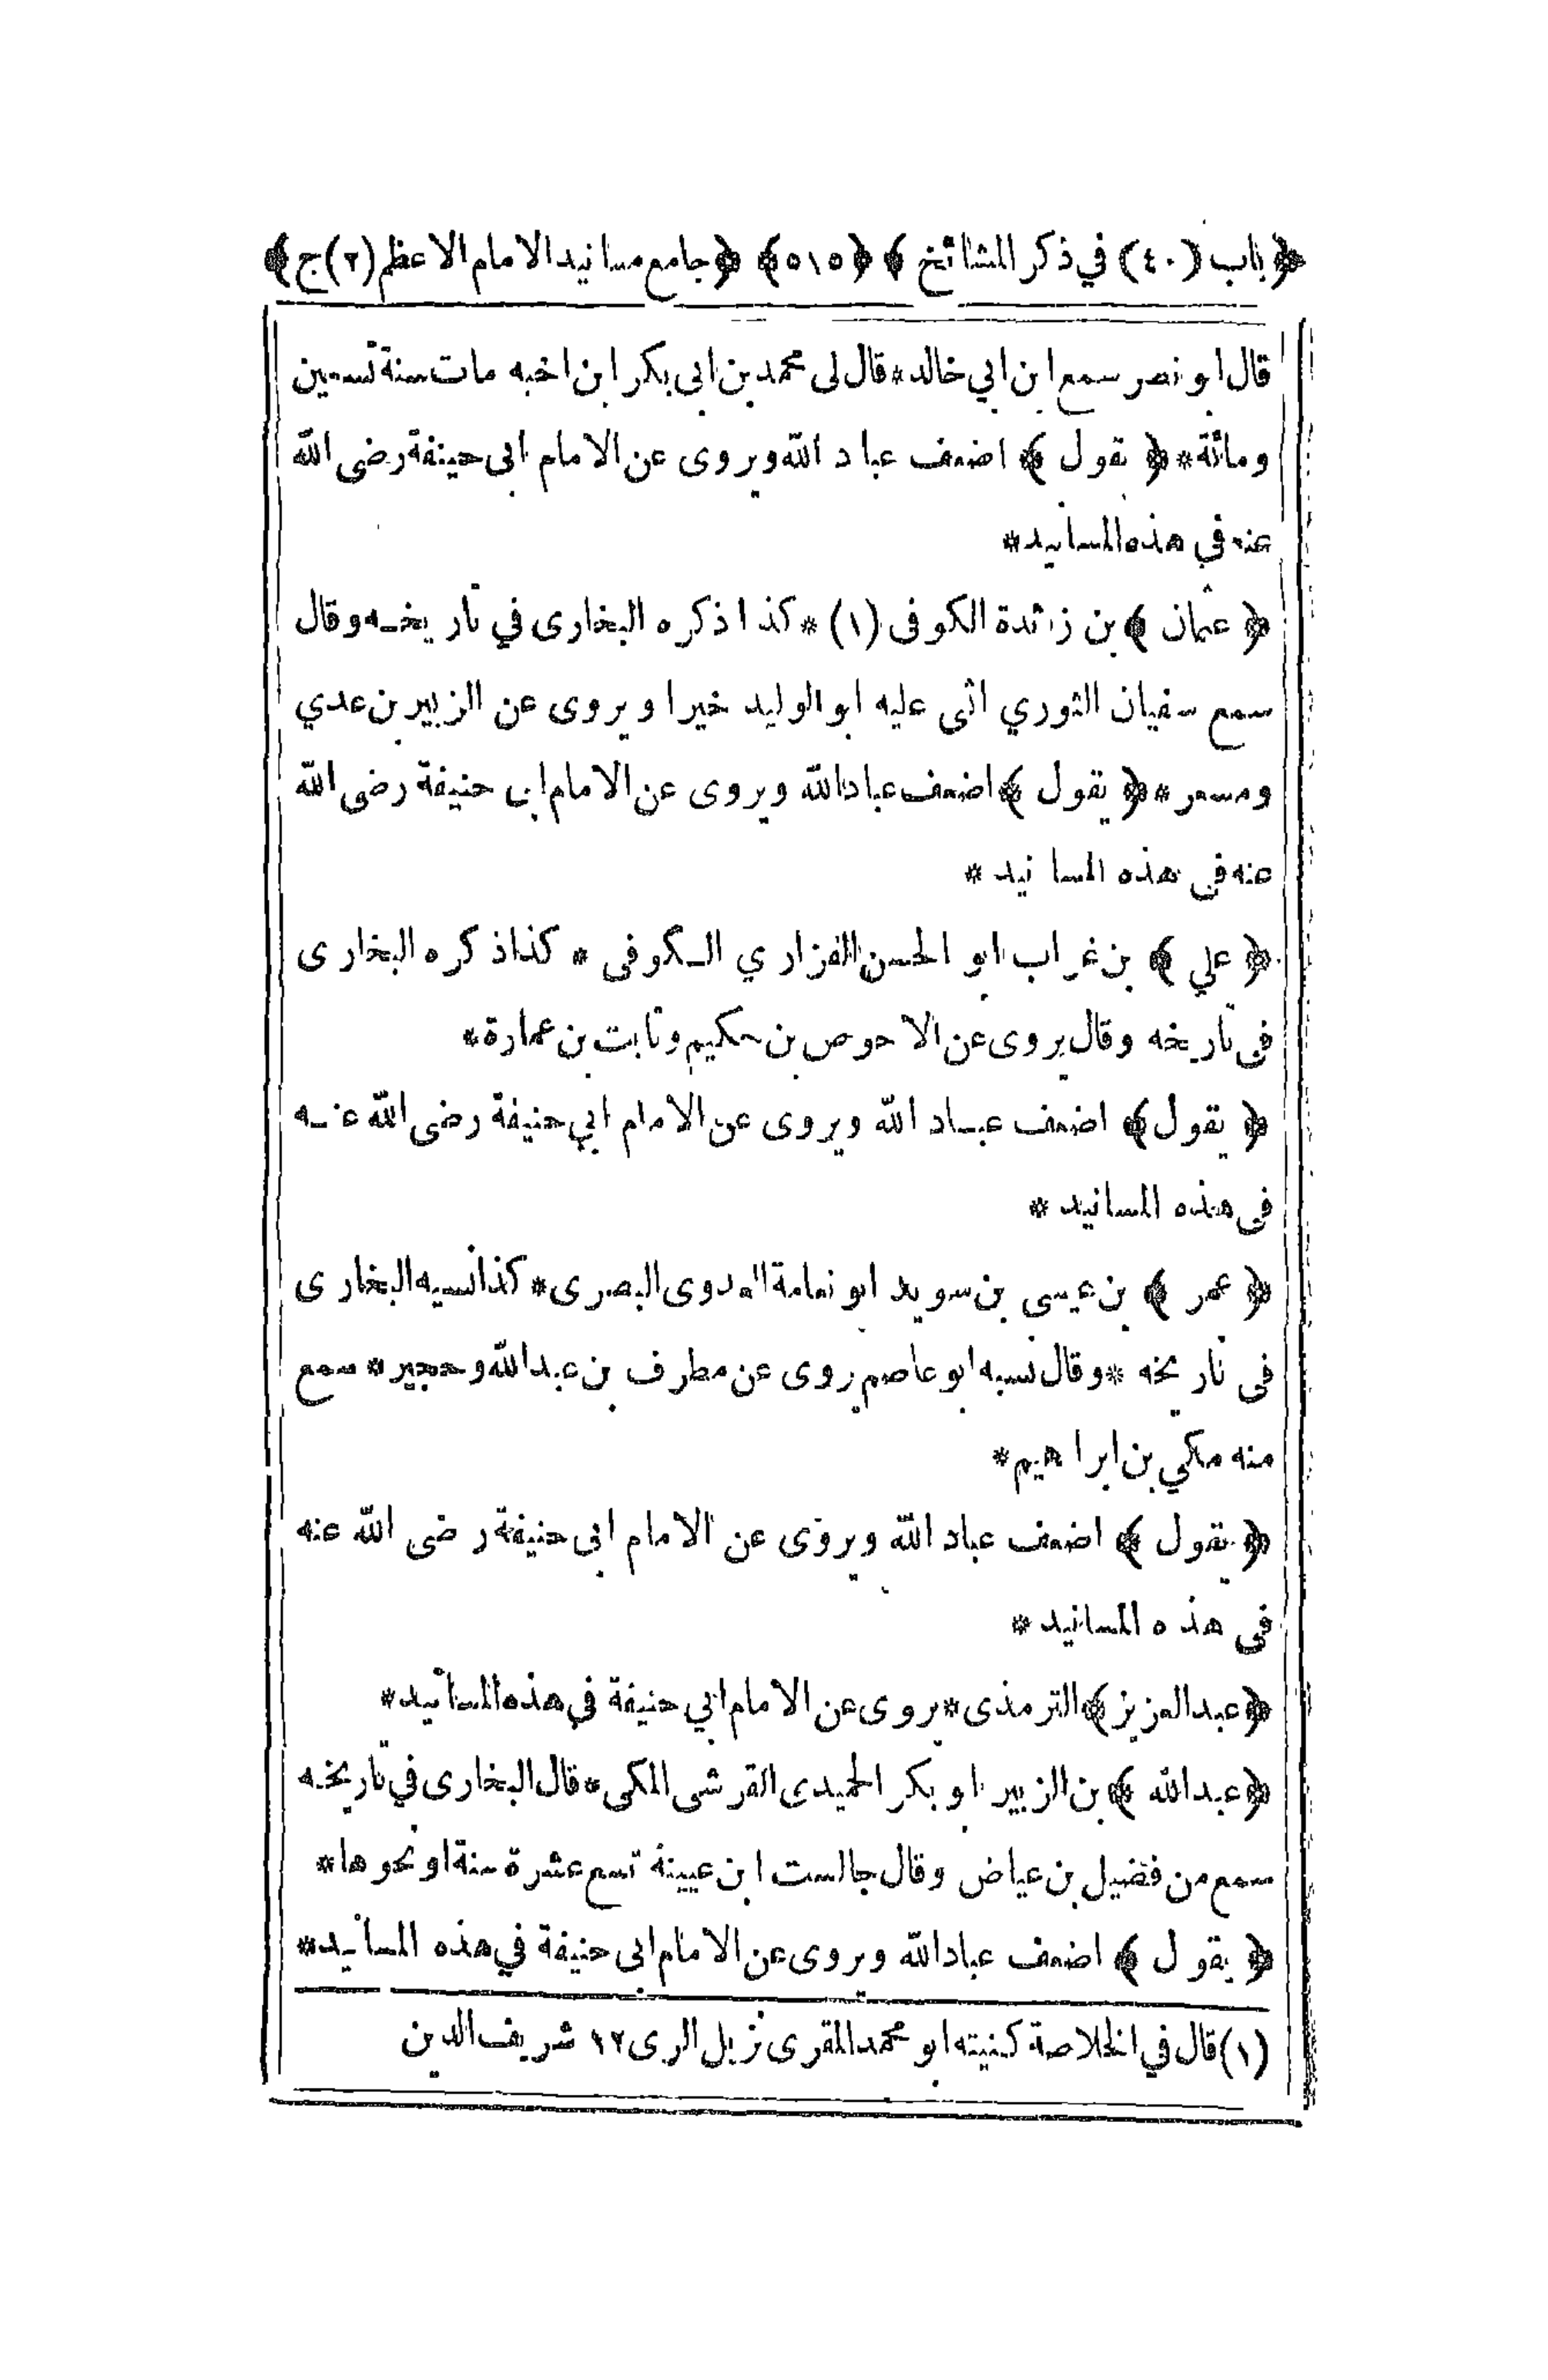 ﴿باب (٤٠) في ذكر المشائخ﴾ ﴿٥١٥﴾ ﴿جامع مسانيد الامام الاعظم (٢) ج﴾
قال ابو نصر سمع ابن ابي خالد * قال لى محمد بن ابى بكر ابن اخيه مات سنة تسعين
ومائة * ﴿ يقول ﴾ اضعف عباد الله ويروى عن الامام ابى حينفة رضى الله
عنه في هذه المسانيد *
﴿ عثمان ﴾ بن زائدة الكوفى (١) * كذا ذكره البخارى في تاريخه وقال
سمع سفيان الثوري اثنى عليه ابو الوليد خيرا ويروى عن الزبير بن عدي
ومسعر * ﴿ يقول ﴾ اضعف عباد الله ويروى عن الامام ابى حنيفة رضى الله
عنه فى هذه المسانيد *
﴿ علي ﴾ بن غراب ابو الحسن الفزاري الكوفى * كذا ذكره البخارى
فى تاريخه وقال يروى عن الاحوص بن حكيم وثابت بن عمارة *
﴿ يقول ﴾ اضعف عباد الله ويروى عن الامام ابي حنيفة رضى الله عنه
فى هذه المسانيد *
﴿ عمر ﴾ بن عيسى بن سويد ابو نعامة العدوى البصرى * كذا نسبه البخارى
فى تاريخه * وقال نسبه ابو عاصم روى عن مطرف بن عبد الله وحجير * سمع
منه مكي بن ابراهيم *
﴿ يقول ﴾ اضعف عباد الله ويروى عن الامام ابى حنيفة رضى الله عنه
فى هذه المسانيد *
﴿ عبد العزيز ﴾ الترمذى * يروى عن الامام ابي حنيفة في هذه المسانيد *
﴿ عبد الله ﴾ بن الزبير ابو بكر الحميدى القرشى المكى * قال البخارى في تاريخه
سمع من فضيل بن عياض وقال جالست ابن عيينة تسع عشرة سنة او نحوها *
﴿ يقول ﴾ اضعف عباد الله ويروى عن الامام ابى حنيفة في هذه المسانيد *
(١) قال في الخلاصة كنيته ابو محمد المقرى نزيل الرى ١٢ شريف الدين